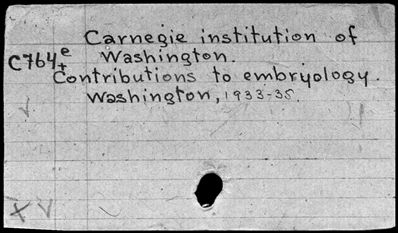 Carnegie institution of
C764+e Washington.
Contributions to embryology.
Washington, 1933-35.